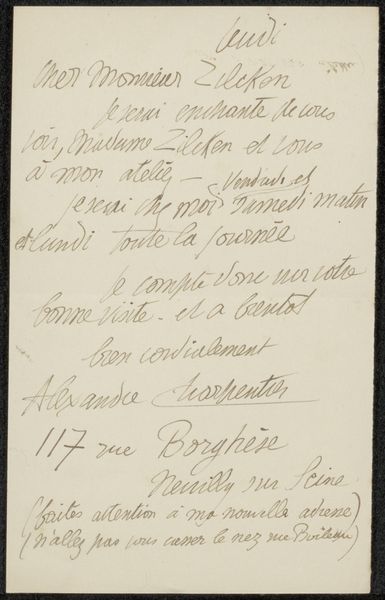 Jeudi
Cher Monsieur Zilcken
Je serai enchanté de vous
voir, Madame Zilcken et vous
à mon atelier —
Vendredi et
je serai chez moi Samedi matin
et lundi toute la journée
Je compte donc sur votre
bonne visite - et a bientôt
bien cordialement
Alexandre Charpentier
117 rue Borghèse
Neuilly sur Seine
(faites attention à ma nouvelle adresse)
(n'allez pas vous casser le nez rue Boileau)